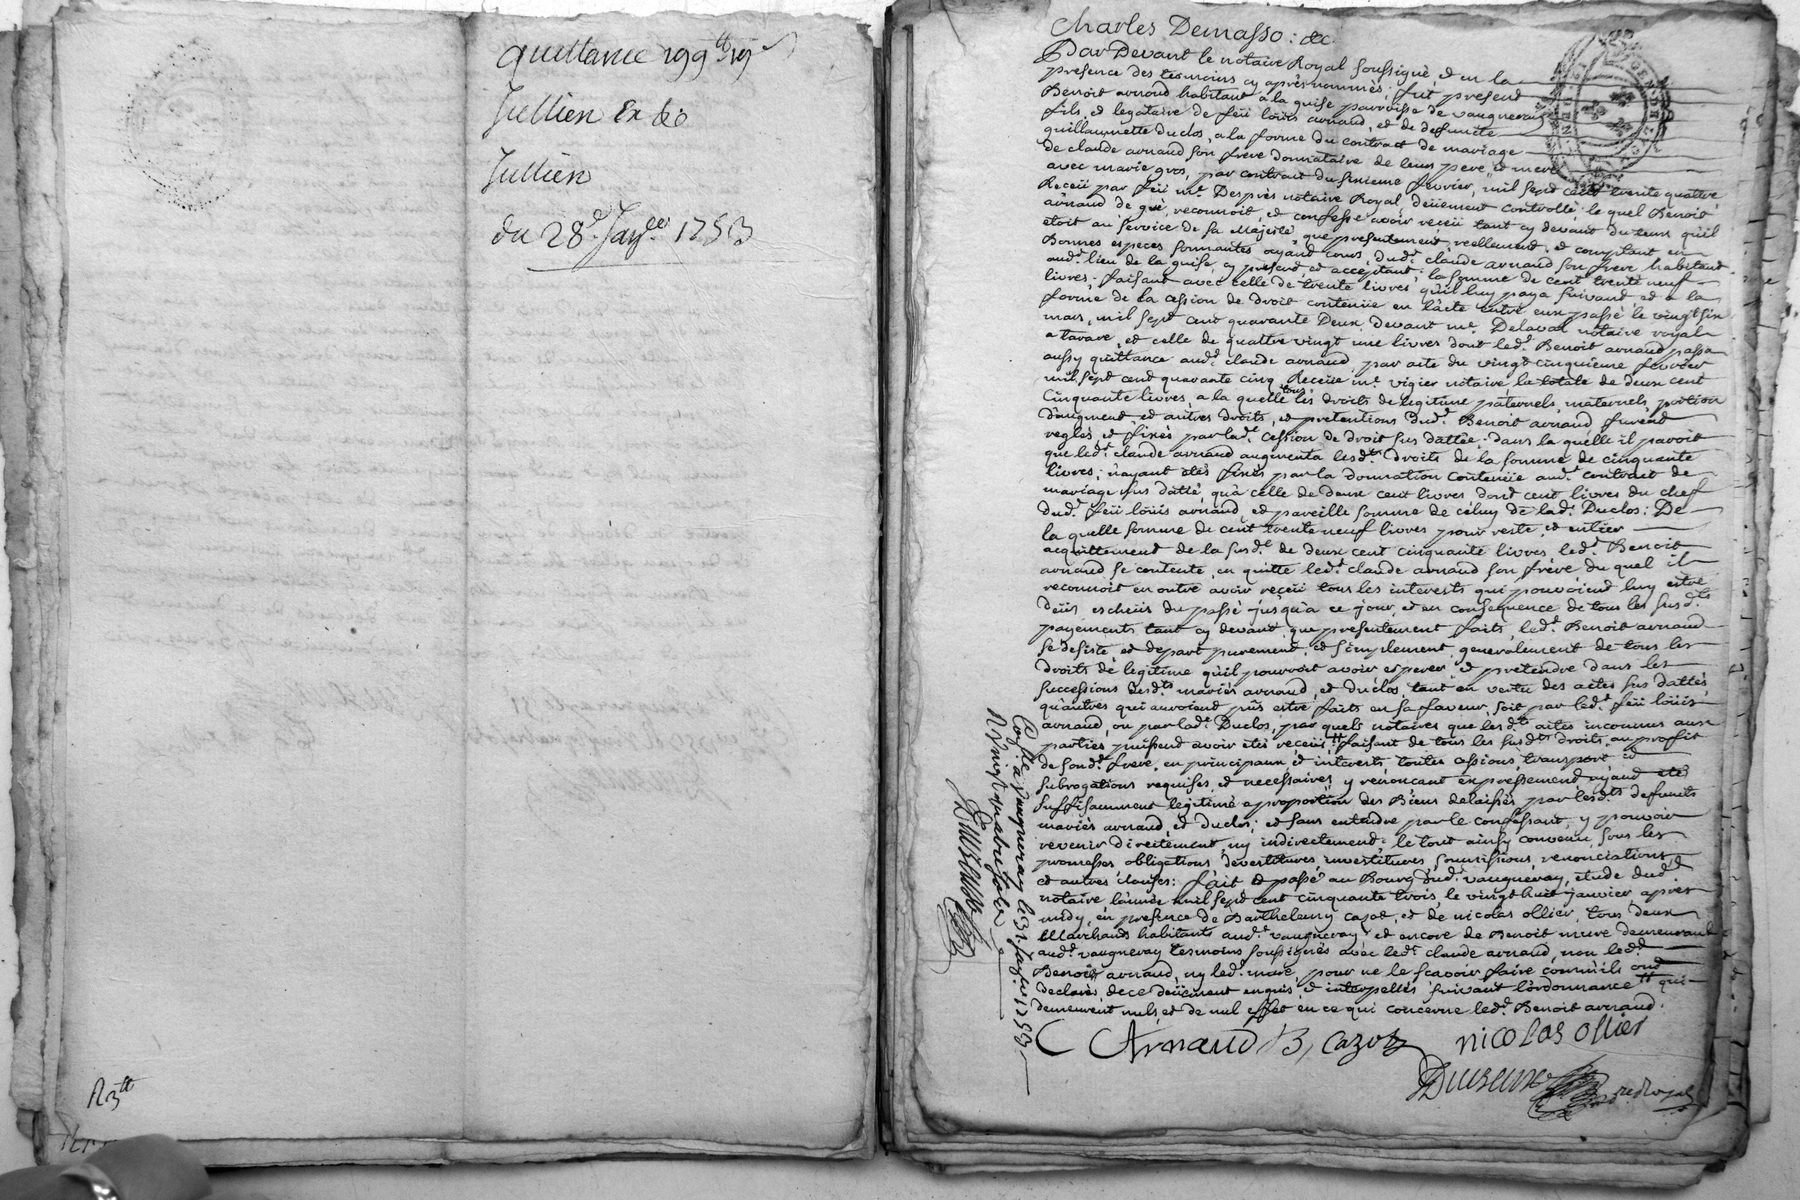 quittance 199ᵗᵗ 19ˢ
Jullien Ex &ᵒ
Jullien
du 28ᵉ Janʳᵉ 1753
R 3ᵗᵗ
Charles Demasso : &c
Par Devant le notaire Royal soussigné et en la
presence des temoins cy après nommés ; fut present
Benoit arnaud habitant a la guise parroisse de vaugneray
fils, et legataire de feü loüis arnaud, et de deffunte
guillaumette duclos, a la forme du contract de mariage
de claude arnaud son frere donnataire de leurs pere et mere
avec marie gros, par contract du sixieme fevrier, mil sept cent trente quattre
Receü par feü mᵉ Desprès notaire Royal, deüement controllé, le quel Benoit
arnaud de gré, reconnoit, et confesse avoir receü tant cy devant du tems qu'il
etoit au service de sa Majesté, que presentement, reellement, et comptant en
Bonnes especes sonnantes ayant cours, dudᵗ claude arnaud son frere habitant
audᵗ lieu de la guise, cy present, et acceptant ; la somme de cent trente neuf
livres ; faisant avec celle de trente livres qu'il luy paya suivant et a la
forme de la cession de droit contenüe en l'acte entre eux passé le vingt six
mars, mil sept cent quarante Deux, devant mᵉ Delaval notaire royal
a tarare, et celle de quattre vingt une livres dont ledᵗ Benoit arnaud passa
aussy quittance audᵗ claude arnaud, par acte du vingt cinquieme fevrier
mil sept cent quarante cinq, Receüe mᵉ vigier notaire, la totale de deux cent
cinquante livres, a la quelle tous les droits de legitime paternels, maternels, portion
d'augment, et autres droits, et pretentions dudᵗ Benoit arnaud furent
reglés et fixés par ladᵗ cession de droit sus dattée ; dans la quelle il paroit
que ledᵗ claude arnaud augmenta lesdᵗˢ droits de la somme de cinquante
livres ; n'ayant étés fixés par la donnation contenüe audᵗ contract de
mariage sus datté, qu'a celle de deux cent livres dont cent livres du chef
dudᵗ feü loüis arnaud, et pareille somme de celuy de ladᵗ Duclos ; De
la quelle somme de cent trente neuf livres pour reste, et entier
acquittement de la susdᵉ de deux cent cinquante livres, ledᵗ Benoit
arnaud se contente, en quitte ledᵗ claude arnaud son frere du quel il
reconnoit en outre avoir receü tous les interests qui pouvoient luy estre
deüs, escheüs du passé jusqu'a ce jour, et en consequence de tous les susdᵗˢ
payements tant cy devant, que presentement faits, ledᵗ Benoit arnaud
se desiste et depart purement, et simplement, generalement de tous les
droits de legitime qu'il pourroit avoir esperer et pretendre dans les
successions desdᵗˢ mariés arnaud, et duclos, tant en vertu des actes sus dattés
qu'autres qui auroient pus estre faits en sa faveur, soit par ledᵗ feü loüis
arnaud, ou par ladᵗ Duclos, par quels notaires que lesdᵗˢ actes inconnus aux
parties puissent avoir etés receüs ; faisant de tous les susdᵗˢ droits, au proffit
de sondᵗ frere, en principaux et interests toutes cessions, transport et
subrogations requises, et necessaires, y renoncant expressement ayant eté
suffisamment legitimé a proportion des Biens delaissés par lesdᵗˢ deffunts
mariés arnaud, et duclos ; et sans entendre par le confessant, y pouvoir
revenir directement, ny indirectement ; le tout ainsy convenu sous les
promesses obligations devestitures investitures, soumissions, renonciations,
et autres clauses ; fait et passé au Bourg dudᵗ vaugneray, etude dudᵗ
notaire l'année mil sept cent cinquante trois, le vingt huit janvier après
midy, en presence de Barthelemy cazot, et de nicolas ollier, tous deux
Marchands habitants audᵗ vaugneray, et encore de Benoit mure demeurant
audᵗ vaugneray temoins soussignés avec ledᵗ claude arnaud, non ledᵗ
Benoit arnaud, ny ledᵗ mure, pour ne le scavoir faire comm'ils ont
declarés de ce deüement enquis, et interpellés suivant l'ordonnance qui
demeurent nuls, et de nul effet en ce qui concerne ledᵗ Benoit arnaud.
C Arnaud B, cazot nicolas ollier
not Royal
Collé a vaugneray le 31 Janʳ 1753
R vingt quatre sols